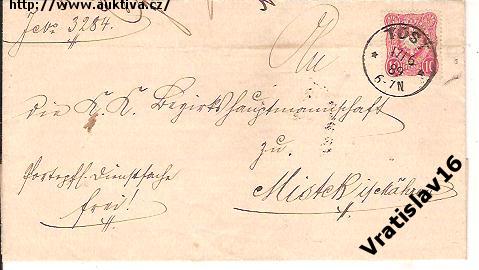 http://www.auktiva.cz/
3284.
An
TOST
17 2
89
6-7N
10
die K. K. Bezirkshauptmannschaft
zu
Portopfl. Dienstsache
frei!
Mistek
Vratislav16